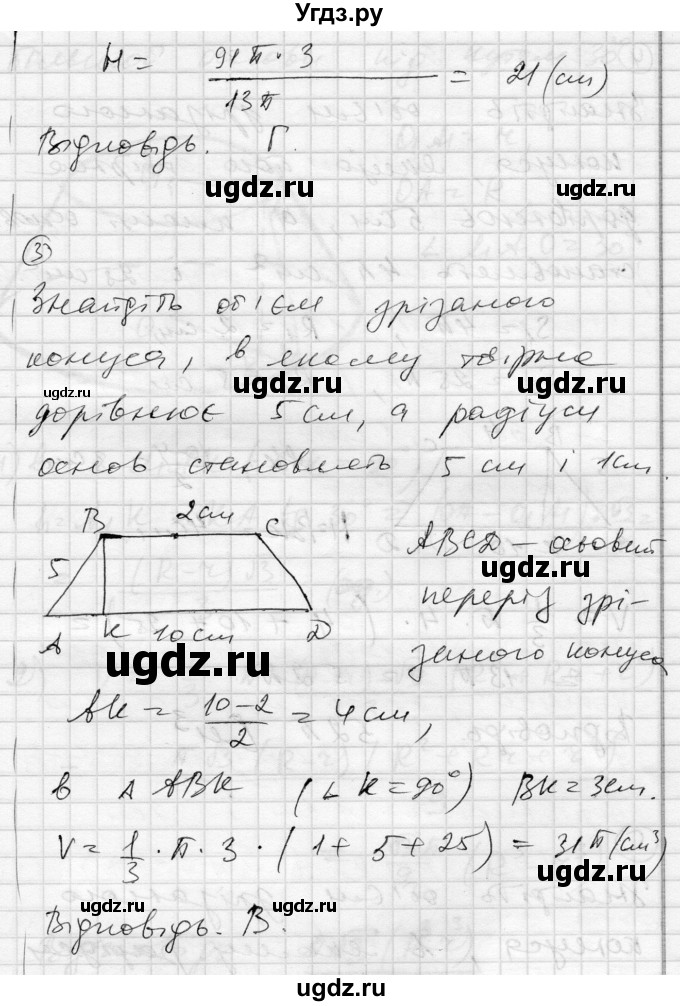 Угдз.ру
H = 91π · 3 / 13π = 21 (см)
Відповідь. Г.
ugdz.ru ugdz.ru
③
Знайдіть об'єм зрізаного
конуса, в якому твірна
ugdz.ru ugdz.ru ugdz.ru
дорівнює 5 см, а радіуси
основ становлять 5 см і 1 см.
B 2см C
5
A K 10 см D
ABCD – осьовий
ugdz.ru
переріз зрі-
заного конуса
ugdz.ru ugdz.ru
AK = 10-2 / 2 = 4 см,
в Δ ABK (∠K = 90°) BK = 3 см.
V = 1/3 · π · 3 · (1 + 5 + 25) = 31π (см³)
ugdz.ru ugdz.ru ugdz.ru
Відповідь. В.
ugdz.ru ugdz.ru
Угдз.ру